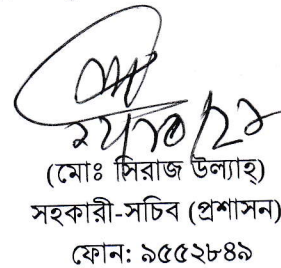 (মোঃ সিরাজ উল্যাহ্)
সহকারী-সচিব (প্রশাসন)
ফোন: ৯৫৫২৮৪৯